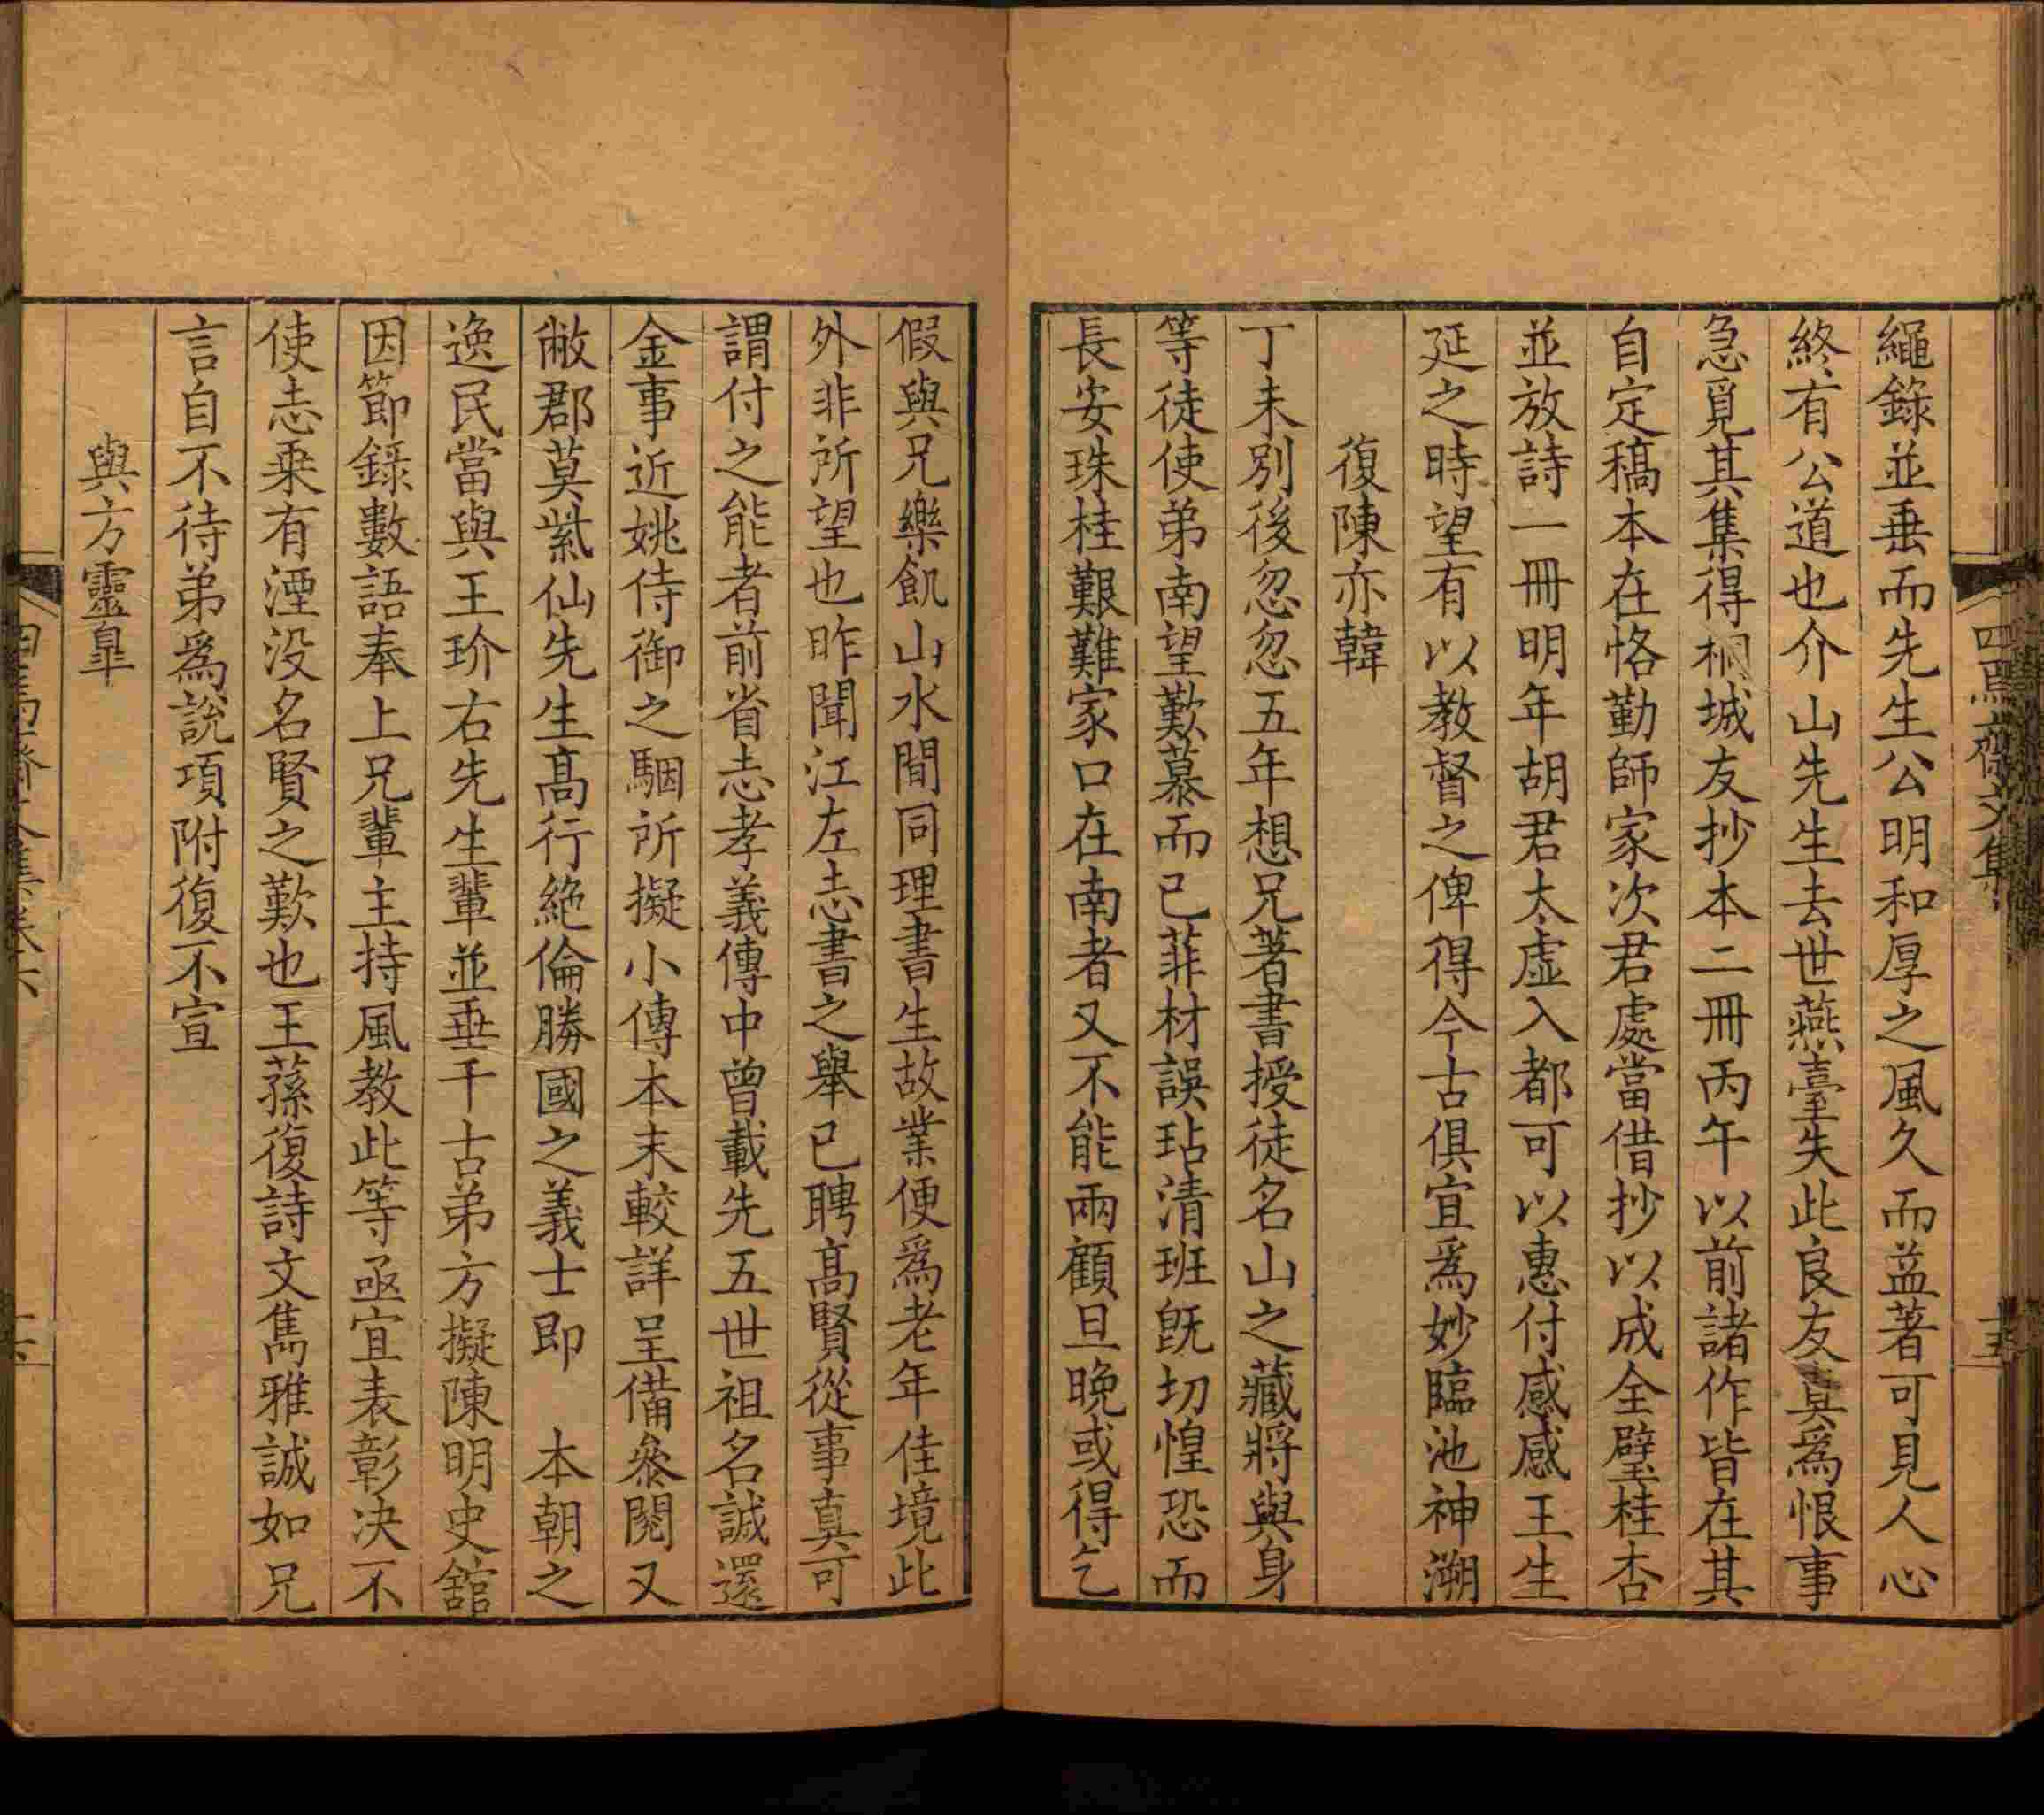 四焉齋文集
繩錄並垂而先生公明和厚之風久而益著可見人心
終有公道也介山先生去世燕臺失此良友眞為恨事
急覓其集得桐城友抄本二冊丙午以前諸作皆在其
自定稿本在恪勤師家次君處當借抄以成全璧桂杏
並放詩一冊明年胡君太虛入都可以惠付感感王生
延之時望有以教督之俾得今古俱宜為妙臨池神溯
復陳亦韓
丁未別後忽忽五年想兄著書授徒名山之藏將與身
等徒使弟南望歎慕而已菲材誤玷清班旣切惶恐而
長安珠桂艱難家口在南者又不能兩顧旦晚或得乞
假與兄樂飢山水間同理書生故業便為老年佳境此
外非所望也昨聞江左志書之舉已聘高賢從事真可
謂付之能者前省志孝義傳中曾載先五世祖名誠還
金事近姚侍御之駰所擬小傳本末較詳呈備叅閱又
敝郡莫紫仙先生高行絶倫勝國之義士即　本朝之
逸民當與王玠右先生輩並垂千古弟方擬陳明史舘
因節錄數語奉上兄輩主持風教此等亟宜表彰决不
使志乘有湮没名賢之歎也王蓀復詩文雋雅誠如兄
言自不待弟為説項附復不宣
與方靈臯